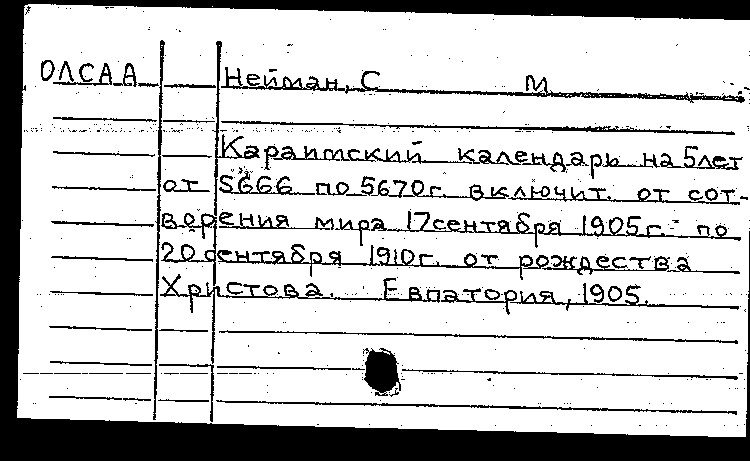 ОЛСАА Нейман, С М
Караимский календарь на 5 лет
от 5666 по 5670 г. включит. от сот-
ворения мира 17 сентября 1905 г. - по
20 сентября 1910 г. от рождества
Христова. Евпатория, 1905.